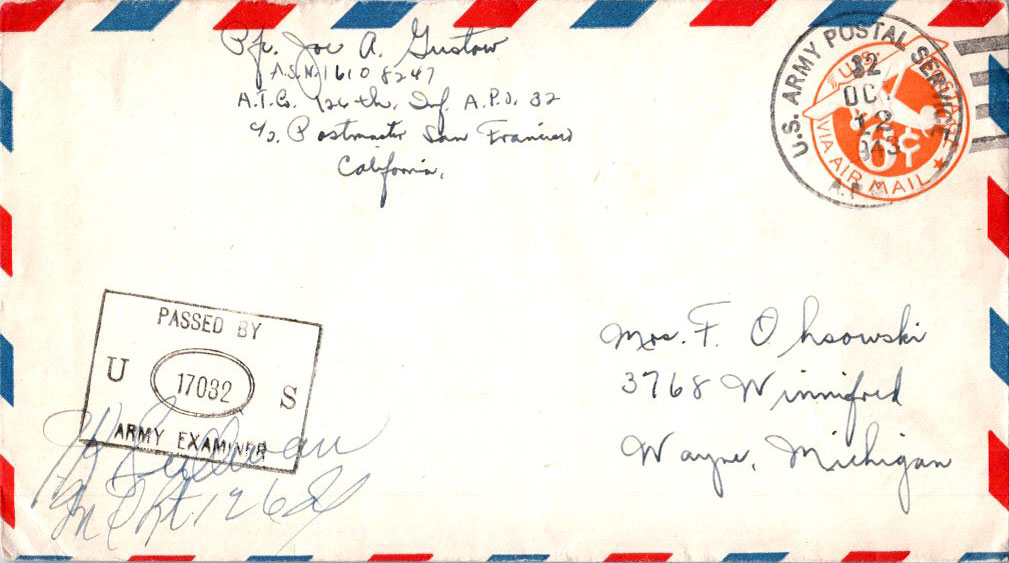 Pfc. Joe A. Gustow
A.S.N. 16108247
A.T.Co. 126th. Inf. A.P.O. 32
c/o Postmaster San Francisco
California.
U.S. ARMY POSTAL SERVICE
32
OCT
12
1943
A.P.O.
U.S. POSTAGE
6¢
VIA AIR MAIL
PASSED BY
U 17032 S
ARMY EXAMINER
Sullivan
126
Mrs. F. Ohsowski
3768 Winnifred
Wayne, Michigan